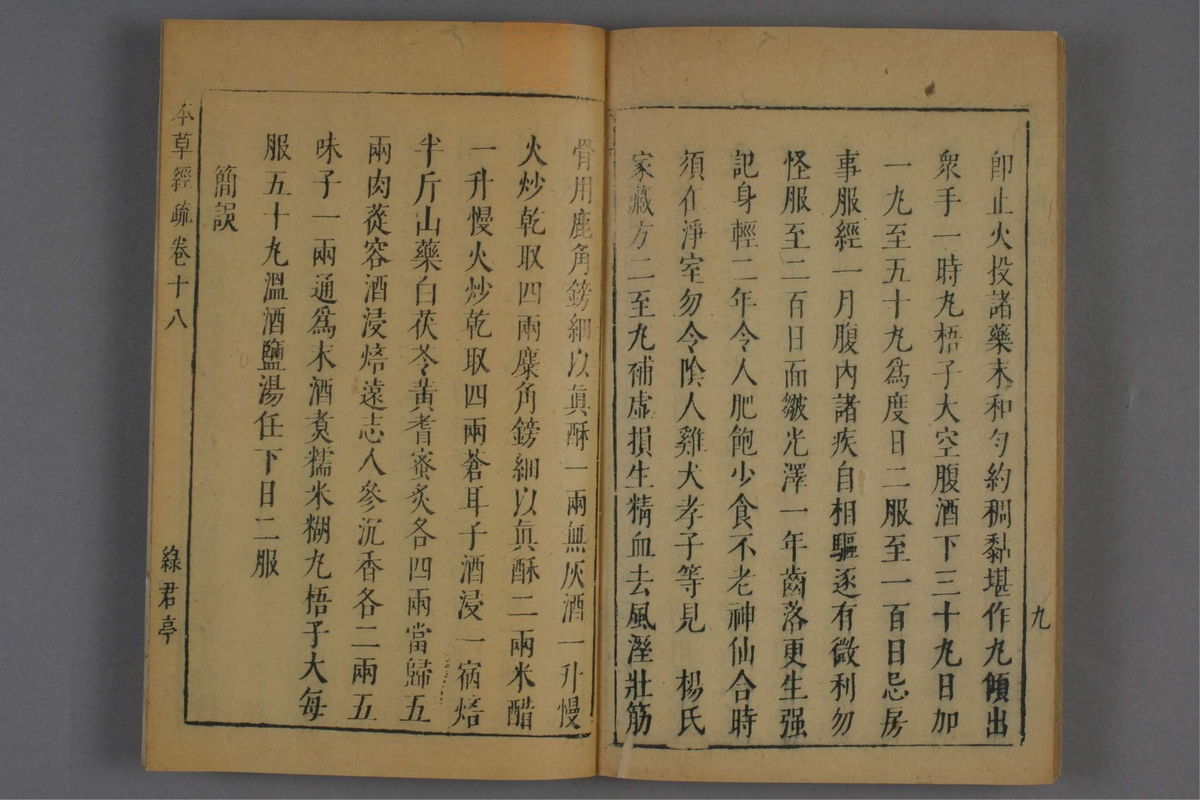 卽止火投諸藥末和勻約稠黏堪作丸傾出
衆手一時丸梧子大空腹酒下三十丸日加
一丸至五十丸爲度日二服至一百日忌房
事服經一月腹內諸疾自相驅逐有微利勿
怪服至二百日面皺光澤一年齒落更生强
記身輕二年令人肥飽少食不老神仙合時
須在淨室勿令陰人雞犬孝子等見　楊氏
家藏方二至丸補虛損生精血去風溼壯筋
九
骨用鹿角鎊細以眞酥一兩無灰酒一升慢
火炒乾取四兩麋角鎊細以眞酥二兩米醋
一升慢火炒乾取四兩蒼耳子酒浸一宿焙
半斤山藥白茯苓黃耆蜜炙各四兩當歸五
兩肉蓯容酒浸焙遠志人參沉香各二兩五
味子一兩通爲末酒煑糯米糊丸梧子大每
服五十丸溫酒鹽湯任下日二服
簡誤
本草經疏卷十八
綠君亭